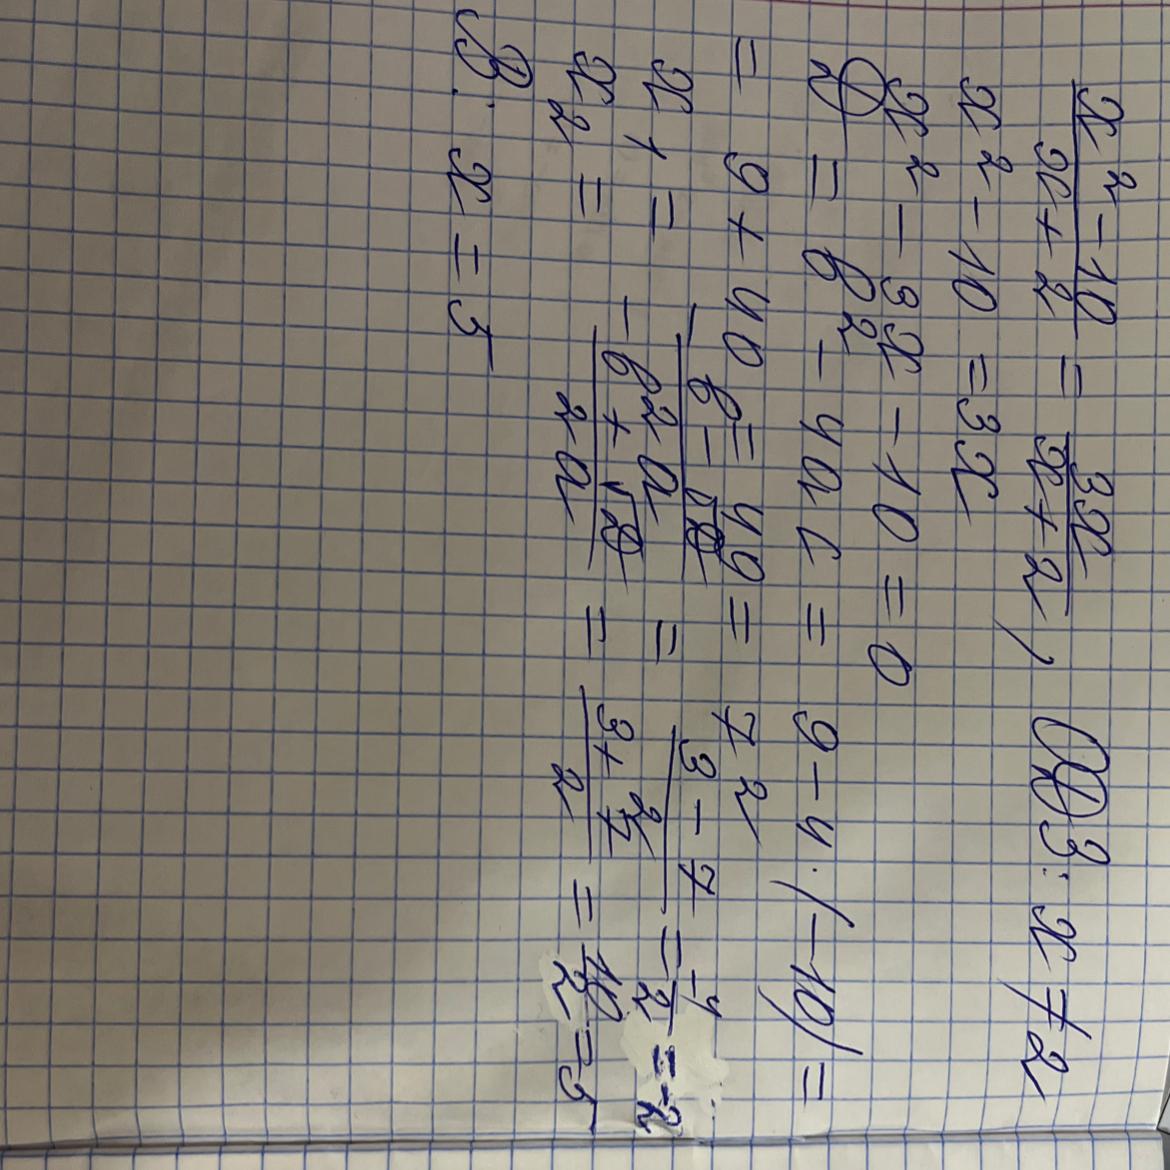 x²-10/x+2 = 3x/x+2, ОДЗ: x ≠ 2
x² - 10 = 3x
x² - 3x - 10 = 0
D = b² - 4ac = 9 - 4·(-10) =
= 9 + 40 = 49 = 7²
x1 = -b-√D/2a = 3-7/2 = -4/2 = -2
x2 = -b+√D/2a = 3+7/2 = 10/2 = 5
В: x = 5